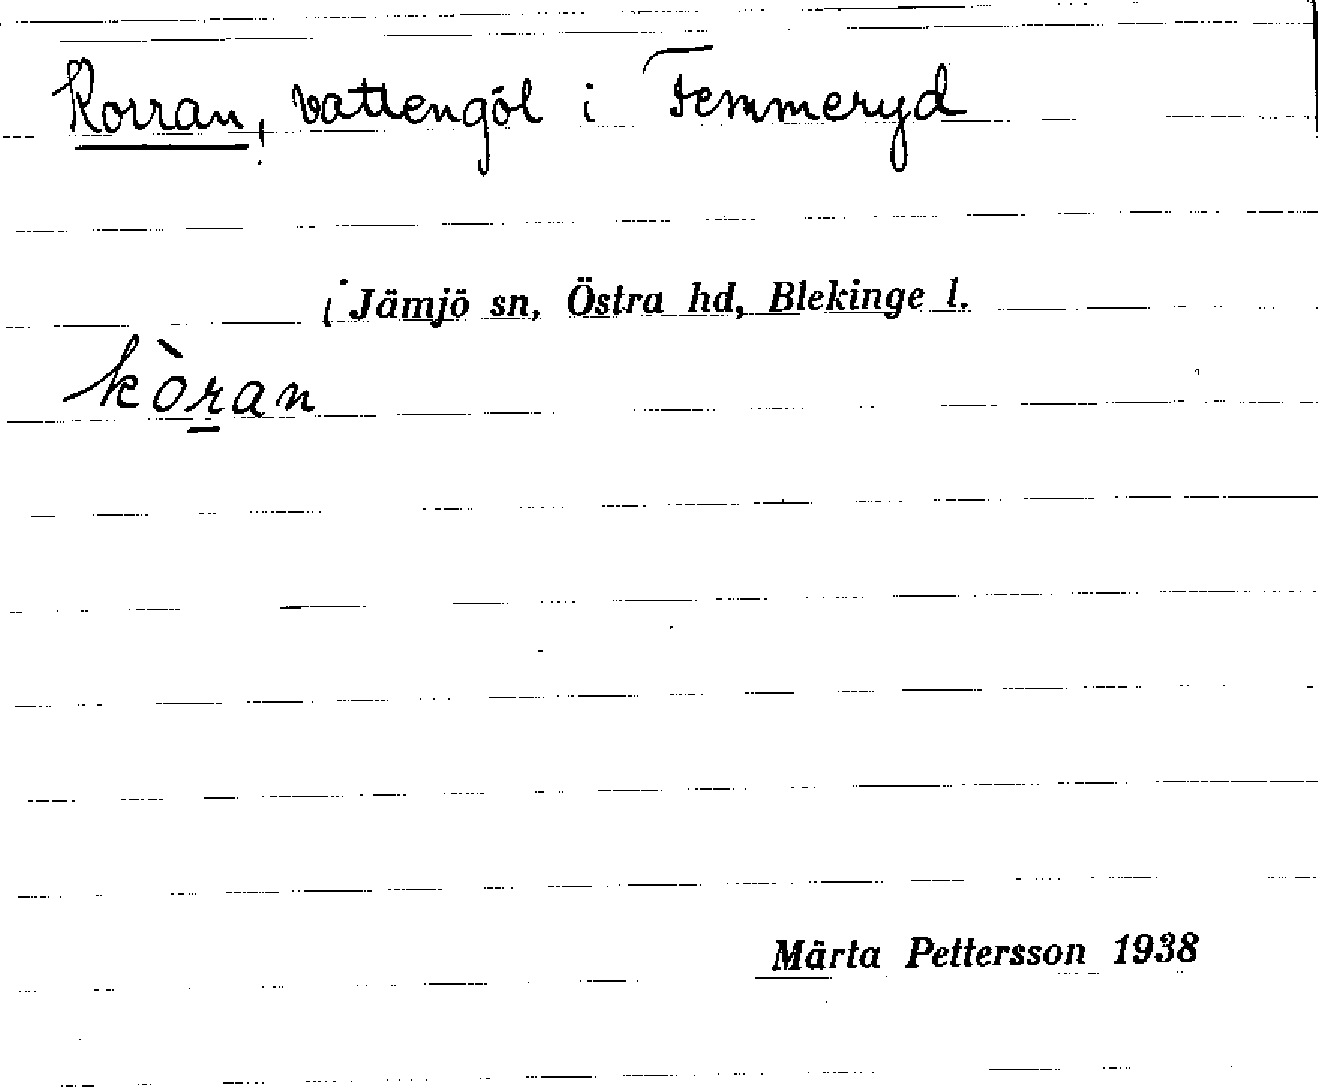 Korran, vattengöl i Femmeryd
i Jämjö sn, Östra hd, Blekinge l.
kòran
Märta Pettersson 1938